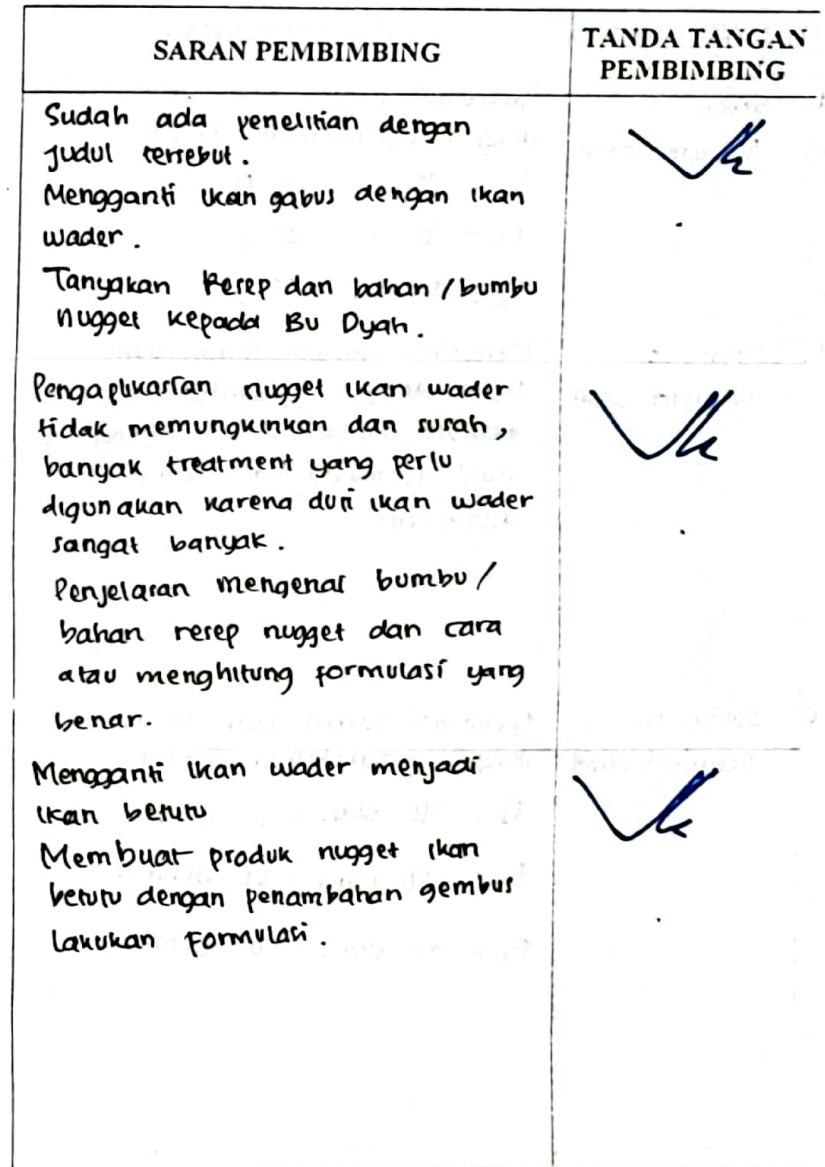 SARAN PEMBIMBING
TANDA TANGAN
PEMBIMBING
Sudah ada penelitian dengan
Judul tersebut.
Mengganti ikan gabus dengan ikan
wader.
Tanyakan Resep dan bahan/bumbu
nugget kepada Bu Dyah.
Pengaplikasian nugget ikan wader
tidak memungkinkan dan susah,
banyak treatment yang perlu
digunakan karena duri ikan wader
sangat banyak.
Penjelasan mengenai bumbu/
bahan resep nugget dan cara
atau menghitung formulasi yang
benar.
Mengganti ikan wader menjadi
ikan betutu
Membuat produk nugget ikan
betutu dengan penambahan gembus
Lakukan Formulasi.